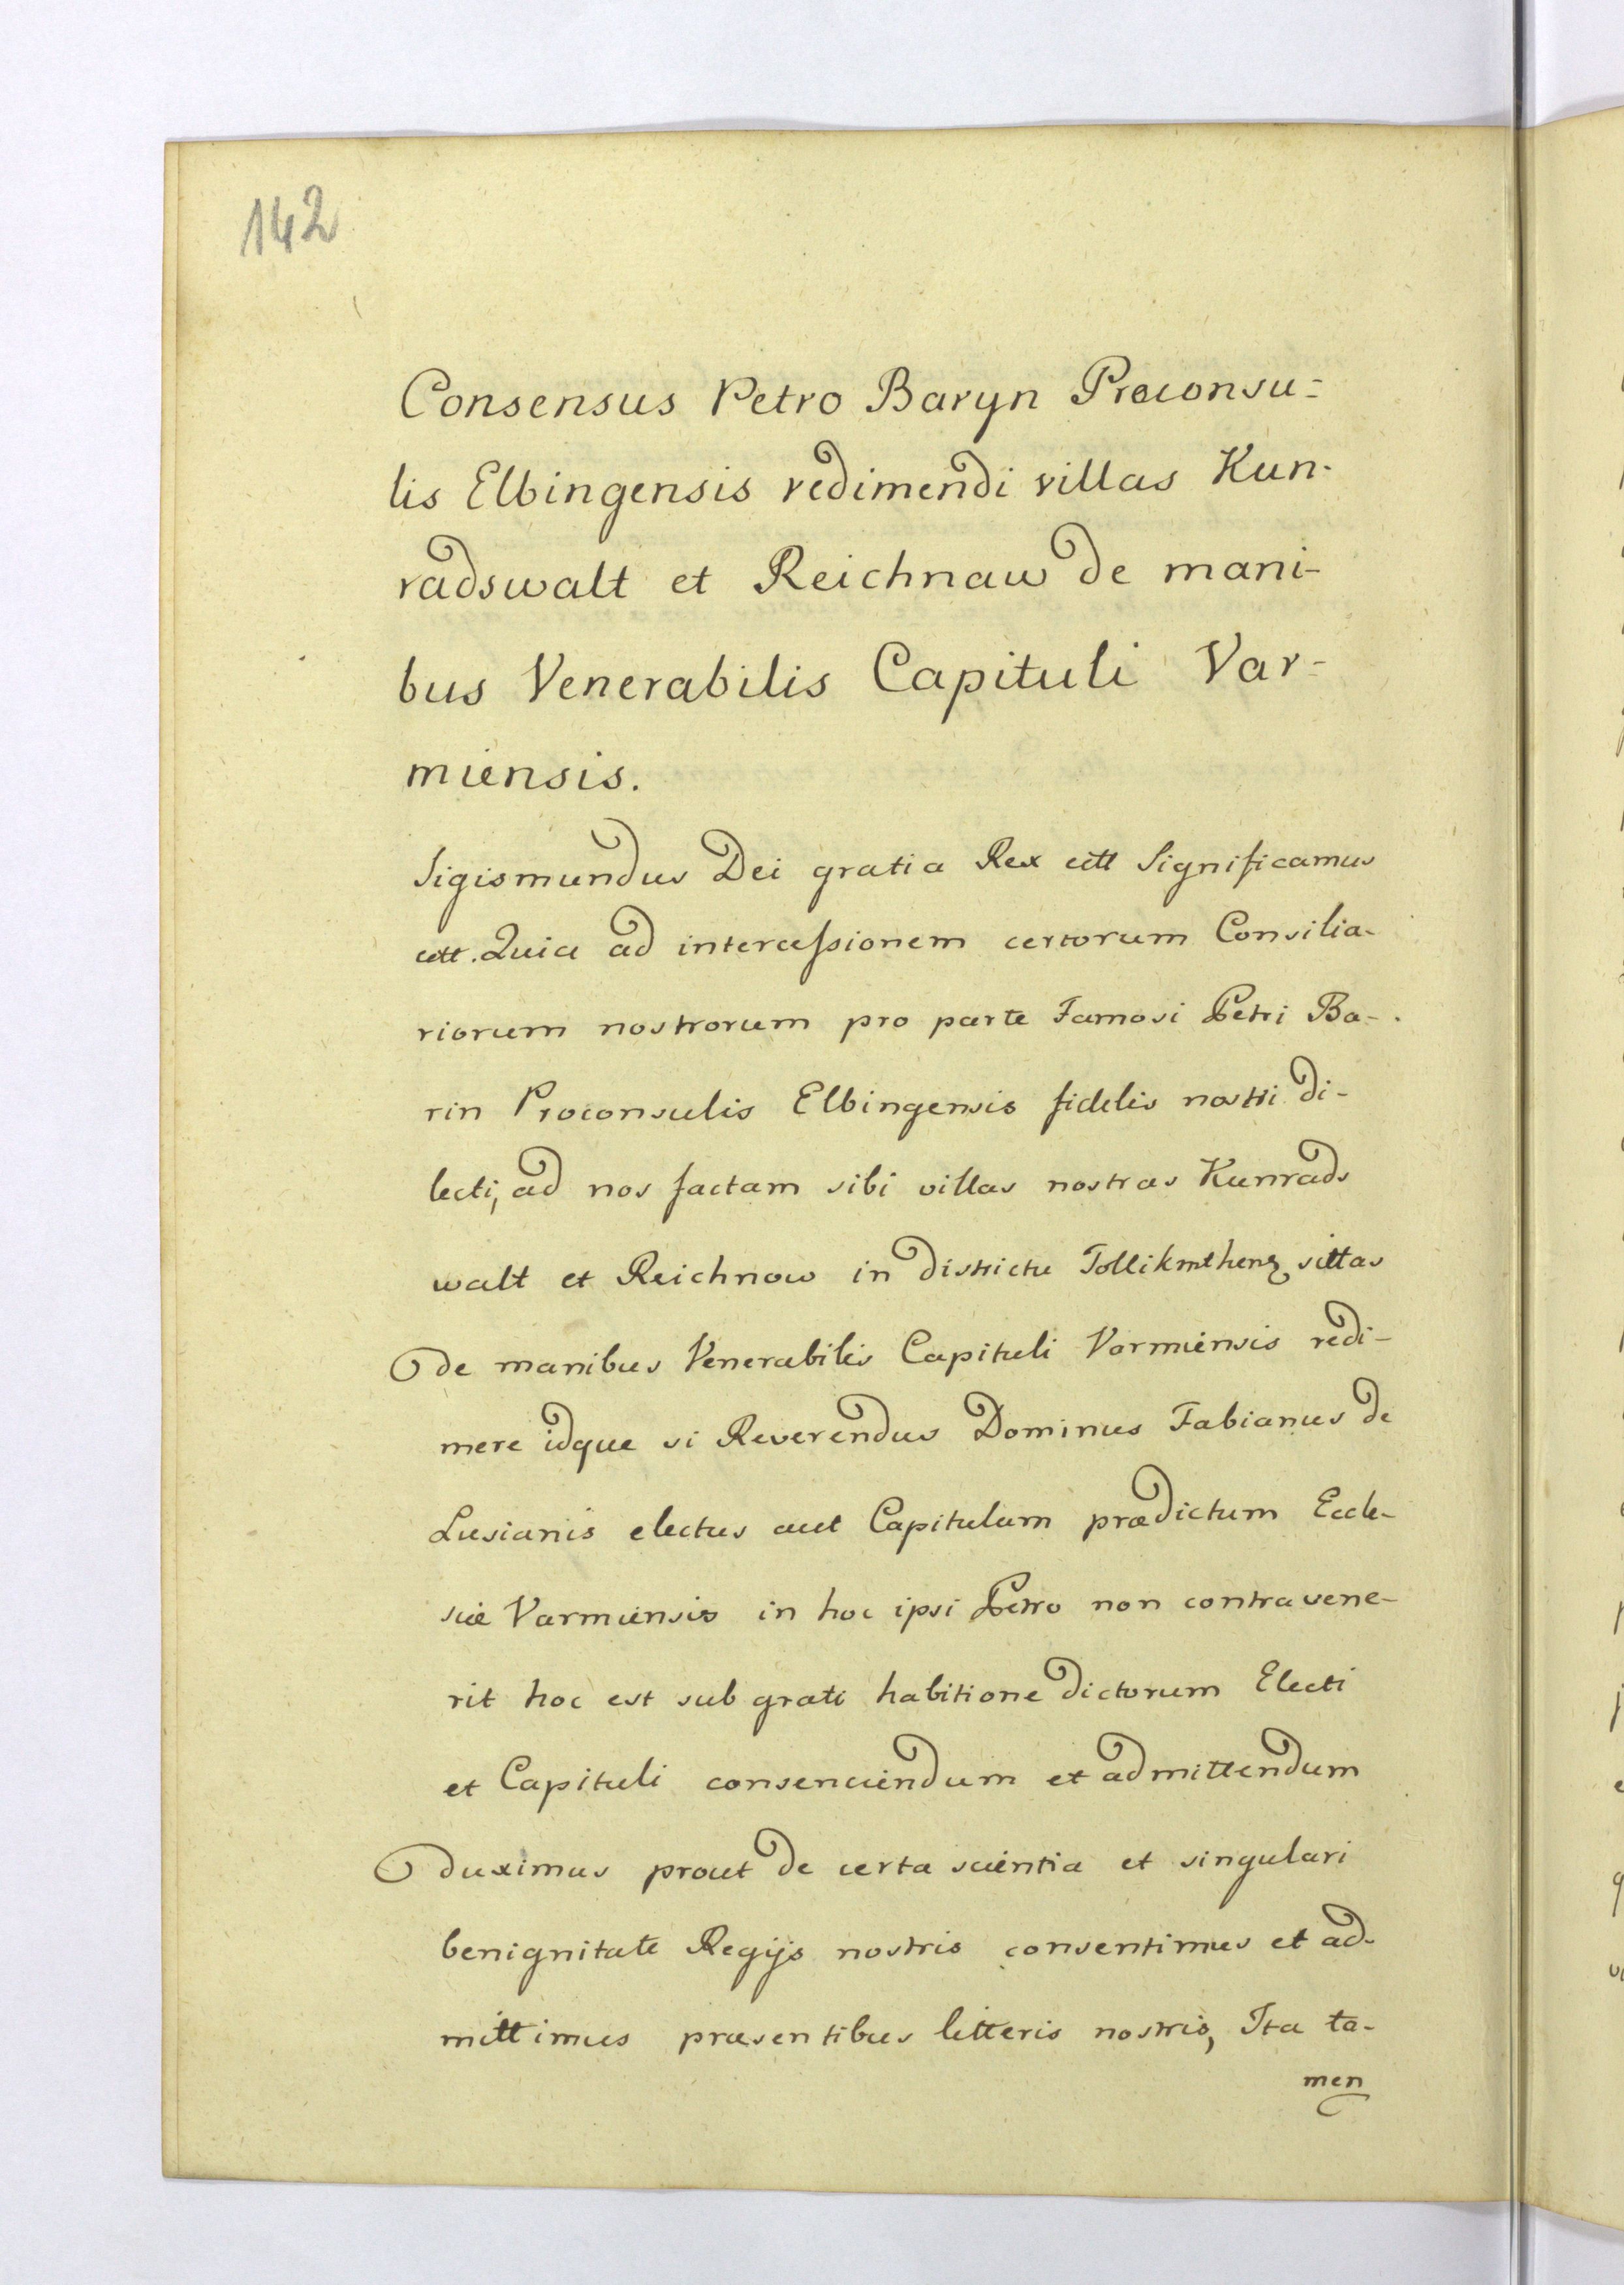 142
Consensus Petro Baryn Proconsu=
lis Elbingensis redimendi villas Kun-
radswalt et Reichnaw de mani-
bus Venerabilis Capituli Var-
miensis.
Sigismundus Dei gratia Rex ett Significamus
ett. Quia ad intercessionem certorum Consilia-
riorum nostrorum pro parte Famosi Petri Ba-
rin Proconsulis Elbingensis fidelis nostri di-
lecti, ad nos factam sibi villas nostras Kunrads
walt et Reichnow in districtu sittas
de manibus Venerabilis Capituli Varmiensis redi-
mere idque si Reverendus Dominus Fabianus de
Lusianis electus aut Capitulum prædictum Eccle-
siæ Varmiensis in hoc ipsi Petro non contravene-
rit hoc est sub grati habitione dictorum Electi
et Capituli consenciendum et admittendum
duximus prout de certa scientia et singulari
benignitate Regijs nostris consentimus et ad-
mittimus præsentibus litteris nostris, Ita ta-
men